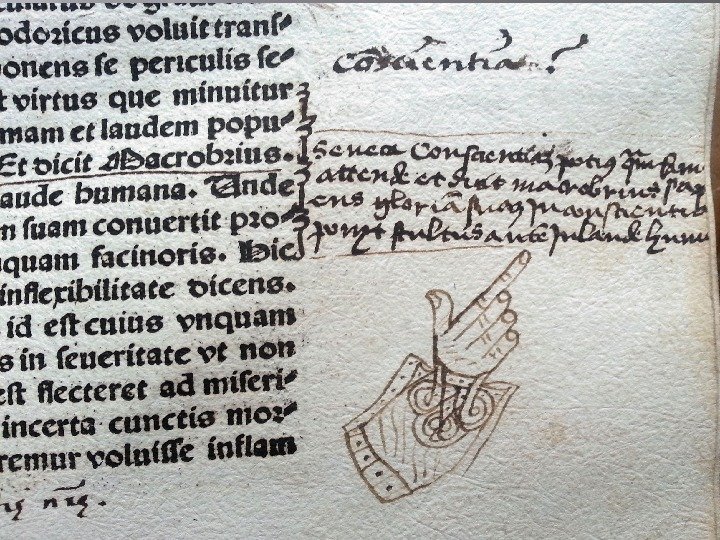 odoricus voluit tranſ⸗
onens ſe periculis ſe⸗
t virtus que minuitur
mam et laudem popu⸗
Et dicit Macrobrius.
laude humana. Unde
n suam conuertit pro⸗
quam facinoris. Hic
inflexibilitate dicens.
id eſt cuius vnquam
s in ſeueritate vt non
eſt flecteret ad miſeri⸗
incerta cunctis mor⸗
remur voluiſſe inflam
Conscientia
Seneca Conscientiam potius
attende et dicit macrobrius
ens gloriam suam in conscientia
ponit stultus autem in laude